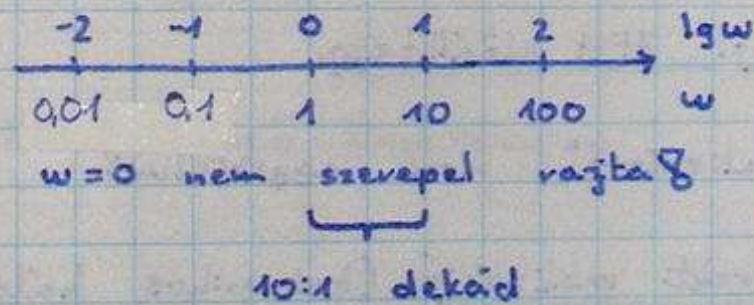 -2 -1 0 1 2 lg w
0,01 0,1 1 10 100 w
w = 0 nem szerepel rajta
10:1 dekád